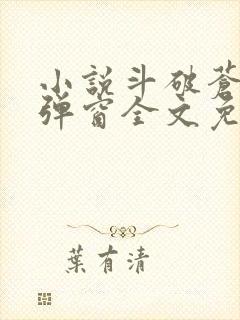 小說斗破蒼
彈窗全文免
葉有清